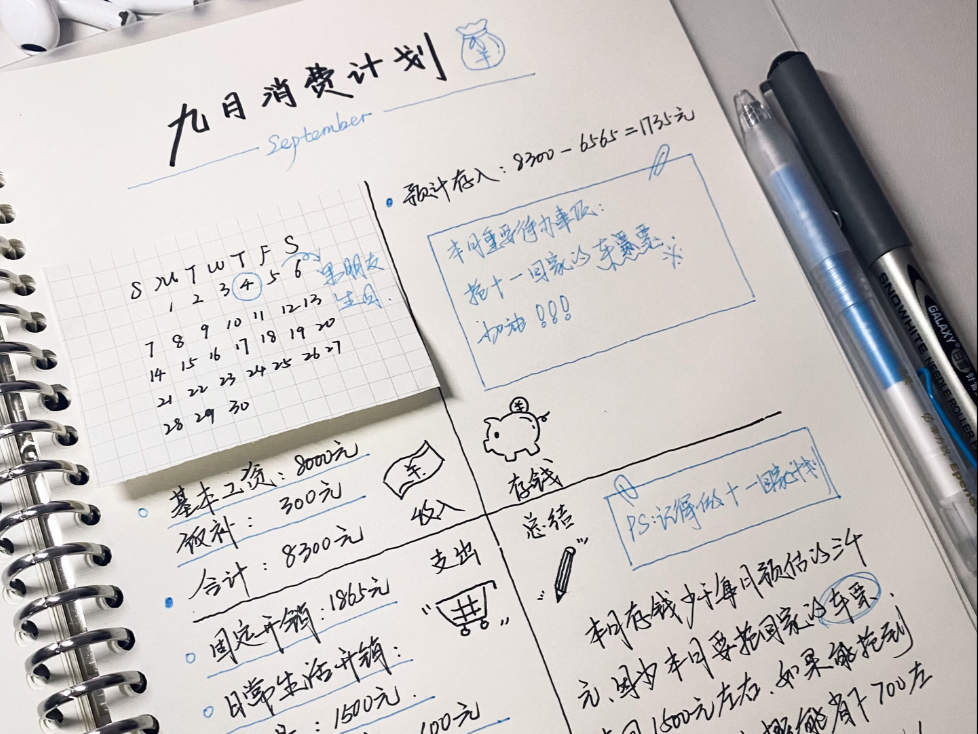 九月消费计划
September
预计存入：8300－6565＝1735元
本月重要待办事项：
抢十一回家的车票票
加油！！！
S M T W T F S
1 2 3 4 5 6
男朋友
生日.
7 8 9 10 11 12 13
14 15 16 17 18 19 20
21 22 23 24 25 26 27
28 29 30
基本工资：8000元
饭补：300元
合计：8300元
收入
存钱
支出
总结
PS:记得做十一回家计划
固定开销：1865元
日常生活开销：
：1500元
600元
本月存钱少于每月预估的三千
元、因为本月要抢回家的车票.
1500元左右、如果能抢到
能省个700左
SNOWHITE NEEDLE ROLLER
GALAXY